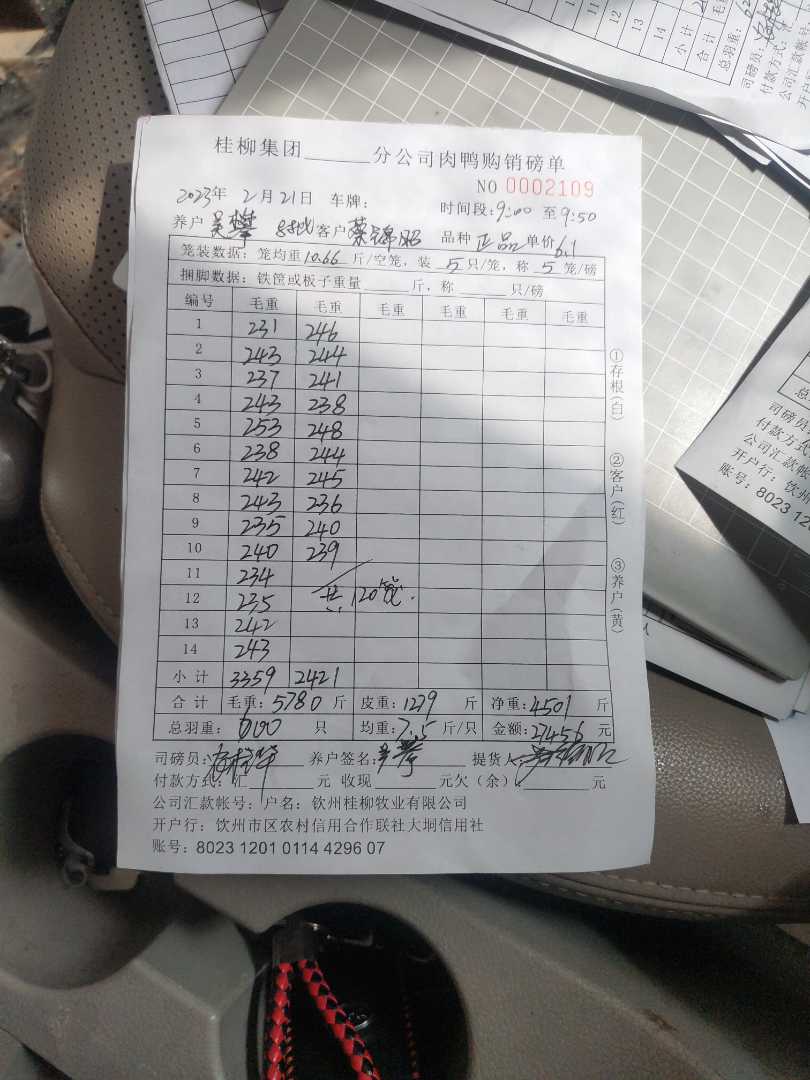 桂柳集团______分公司肉鸭购销磅单
NO 0002109
2023年 2月21日 车牌： 时间段：9:00 至 9:50
养户 吴攀 88批 客户 蔡锦昭 品种 正品 单价 6.1
笼装数据：笼均重10.66 斤/空笼，装 5 只/笼，称 5 笼/磅
捆脚数据：铁筐或板子重量______斤，称______只/磅
编号 毛重 毛重 毛重 毛重 毛重 毛重
1 231 246
2 243 244
3 237 241
4 243 238
5 253 248
6 238 244
7 242 245
8 243 236
9 235 240
10 240 239
11 234
12 235 共120笼.
13 242
14 243
小计 3359 2421
合计 毛重：5780 斤 皮重：1279 斤 净重：4501 斤
总羽重：600 只 均重：7.5 斤/只 金额：27456 元
司磅员： 养户签名： 提货人：
付款方式：汇______元 收现______元欠（余）______元
公司汇款帐号：户名：钦州桂柳牧业有限公司
开户行：钦州市区农村信用合作联社大垌信用社
账号：8023 1201 0114 4296 07
①存根（白）
②客户（红）
③养户（黄）
11
12
13
14
小计
合计
总羽重：
司磅员：
付款方式：
公司汇款帐号
开户
司磅员：
付款方式
公司汇款帐
开户行：钦州
账号：8023 120